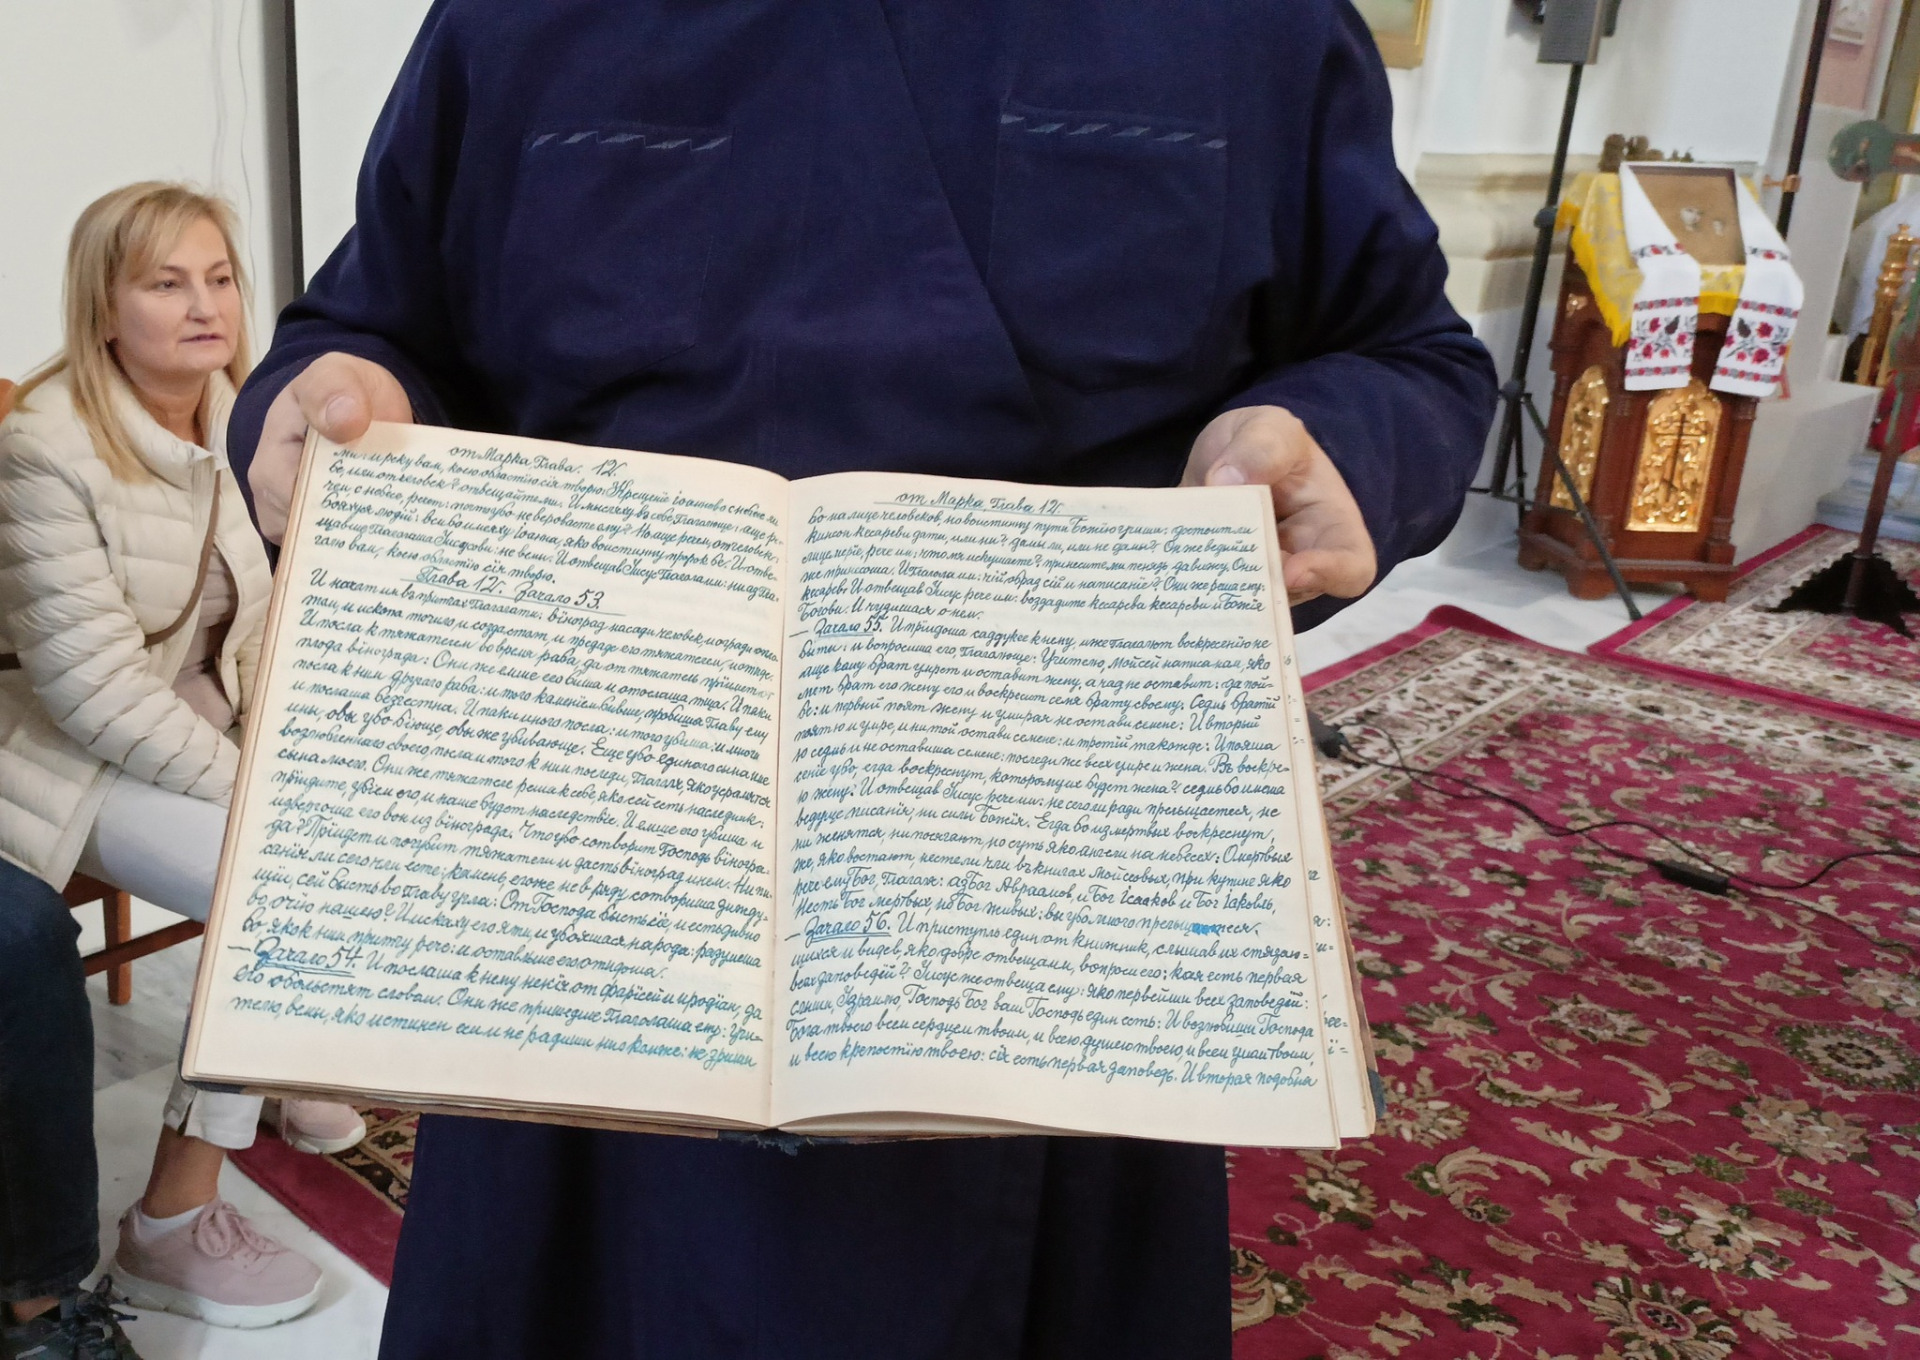 от Марка Глава. 12.
ми и реку вам, коею областїю сїя творю: Крещенїе їоанново с небесе ли
бе, или от человек? отвещайте ми. И мысляху в себе глаголюще: аще ре-
чем, с небесе, речет: почто убо не веровасте ему? Но аще речем, от человек,
бояхуся людїй: вси бо имеяху їоанна, яко воистинну пророк бе. И отве-
щавше глаголаша Їисусови: не вемы. И отвещав Їисус глагола им: ни аз гла-
голю вам, коею областїю сїя творю.
Глава 12. Зачало 53.
И начат им в притчах глаголати: вїноград насади человек, и огради опло-
том, и ископа точило, и созда столп, и предаде его тяжателем, и отъиде.
И посла к тяжателем во время раба, да от тяжатель прїимет от
плода вїнограда: Они же емше его биша и отослаша тща. И паки
посла к ним другаго раба: и того каменїем бивше, пробиша главу ему
и послаша безчестна. И паки иного посла: и того убиша: и многи
ины, овы убо бїюще, овы же убивающе. Еще убо единаго сына име
возлюбленнаго своего, посла и того к ним последи, глаголя, яко усрамятся
сына моего. Они же тяжателе реша к себе, яко сей есть наследник:
прїидите, убїем его, и наше будет наследствїе. И емше его убиша и
извергоша его вон из вїнограда. Что убо сотворит Господь вїногра-
да? Прїидет и погубит тяжатели и даст вїноград инем. Ни пи-
санїя ли сего чли есте: камень, егоже не в ряду сотвориша зижду-
щїи, сей бысть во главу угла: От Господа бысть сїе, и есть дивно
во очїю нашею? И искаху его яти, и убояшася народа: разумеша
бо, яко к ним притчу рече: и оставльше его отъидоша.
— Зачало 54. И послаша к нему некїя от фарїсей и иродїан, да
его обольстят словом. Они же пришедше глаголаша ему: учи-
телю, вемы, яко истинен еси и не радиши ни о комже: не зриши
от Марка Глава 12.
бо на лице человеков, но воистинну пути Божїю учиши: достоит ли
кинсон кесареви дати, или ни? дамы ли, или не дамы? Он же ведый их
лицемерїе, рече им: что мя искушаете? принесите ми пенязь да вижу. Они
же принесоша. И глагола им: чїй образ сїй и написанїе? Они же реша ему:
кесарев: И отвещав Їисус рече им: воздадите кесарева кесареви и Божїя
Богови. И чудишася о нем.
— Зачало 55. И прїидоша саддукее к нему, иже глаголют воскресенїю не
быти: и вопросиша его, глаголюще: Учителю, Мойсей написа нам, яко
аще кому брат умрет и оставит жену, а чад не оставит: да пой-
мет брат его жену его и воскресит семя брату своему. Седмь братїй
бе: и первый поят жену и умирая не остави семене: И вторый
поят ю и умре, и ни той остави семене: и третїй такожде: И пояша
ю седмь и не оставиша семене: последи же всех умре и жена. Въ воскре-
сенїе убо, егда воскреснут, которому их будет жена? седмь бо имеша
ю жену: И отвещав Їисус рече им: не сего ли ради прельщаетеся, не
ведуще писанїя, ни силы Божїя. Егда бо из мертвых воскреснут,
ни женятся, ни посягают, но суть яко ангели на небесех: О мертвых
же, яко востают, несте ли чли въ книгах Мойсеовых, при купине яко
рече ему Бог, глаголя: аз Бог Авраамов, и Бог Їсааков и Бог Їаковль,
Несть Бог мертвых, но Бог живых: вы убо много прельщаетеся.
— Зачало 56. И приступль един от книжник, слышав их стязаю-
щихся и видев, яко добре отвеща им, вопроси его: кая есть первая
всех заповедїй? Їисус же отвеща ему: яко первейши всех заповедїй:
слыши, Їзраилю, Господь Бог ваш Господь един есть: И возлюбиши Господа
Бога твоего всем сердцем твоим, и всею душею твоею, и всем умом твоим,
и всею крепостїю твоею: сїя есть первая заповедь. И вторая подобна